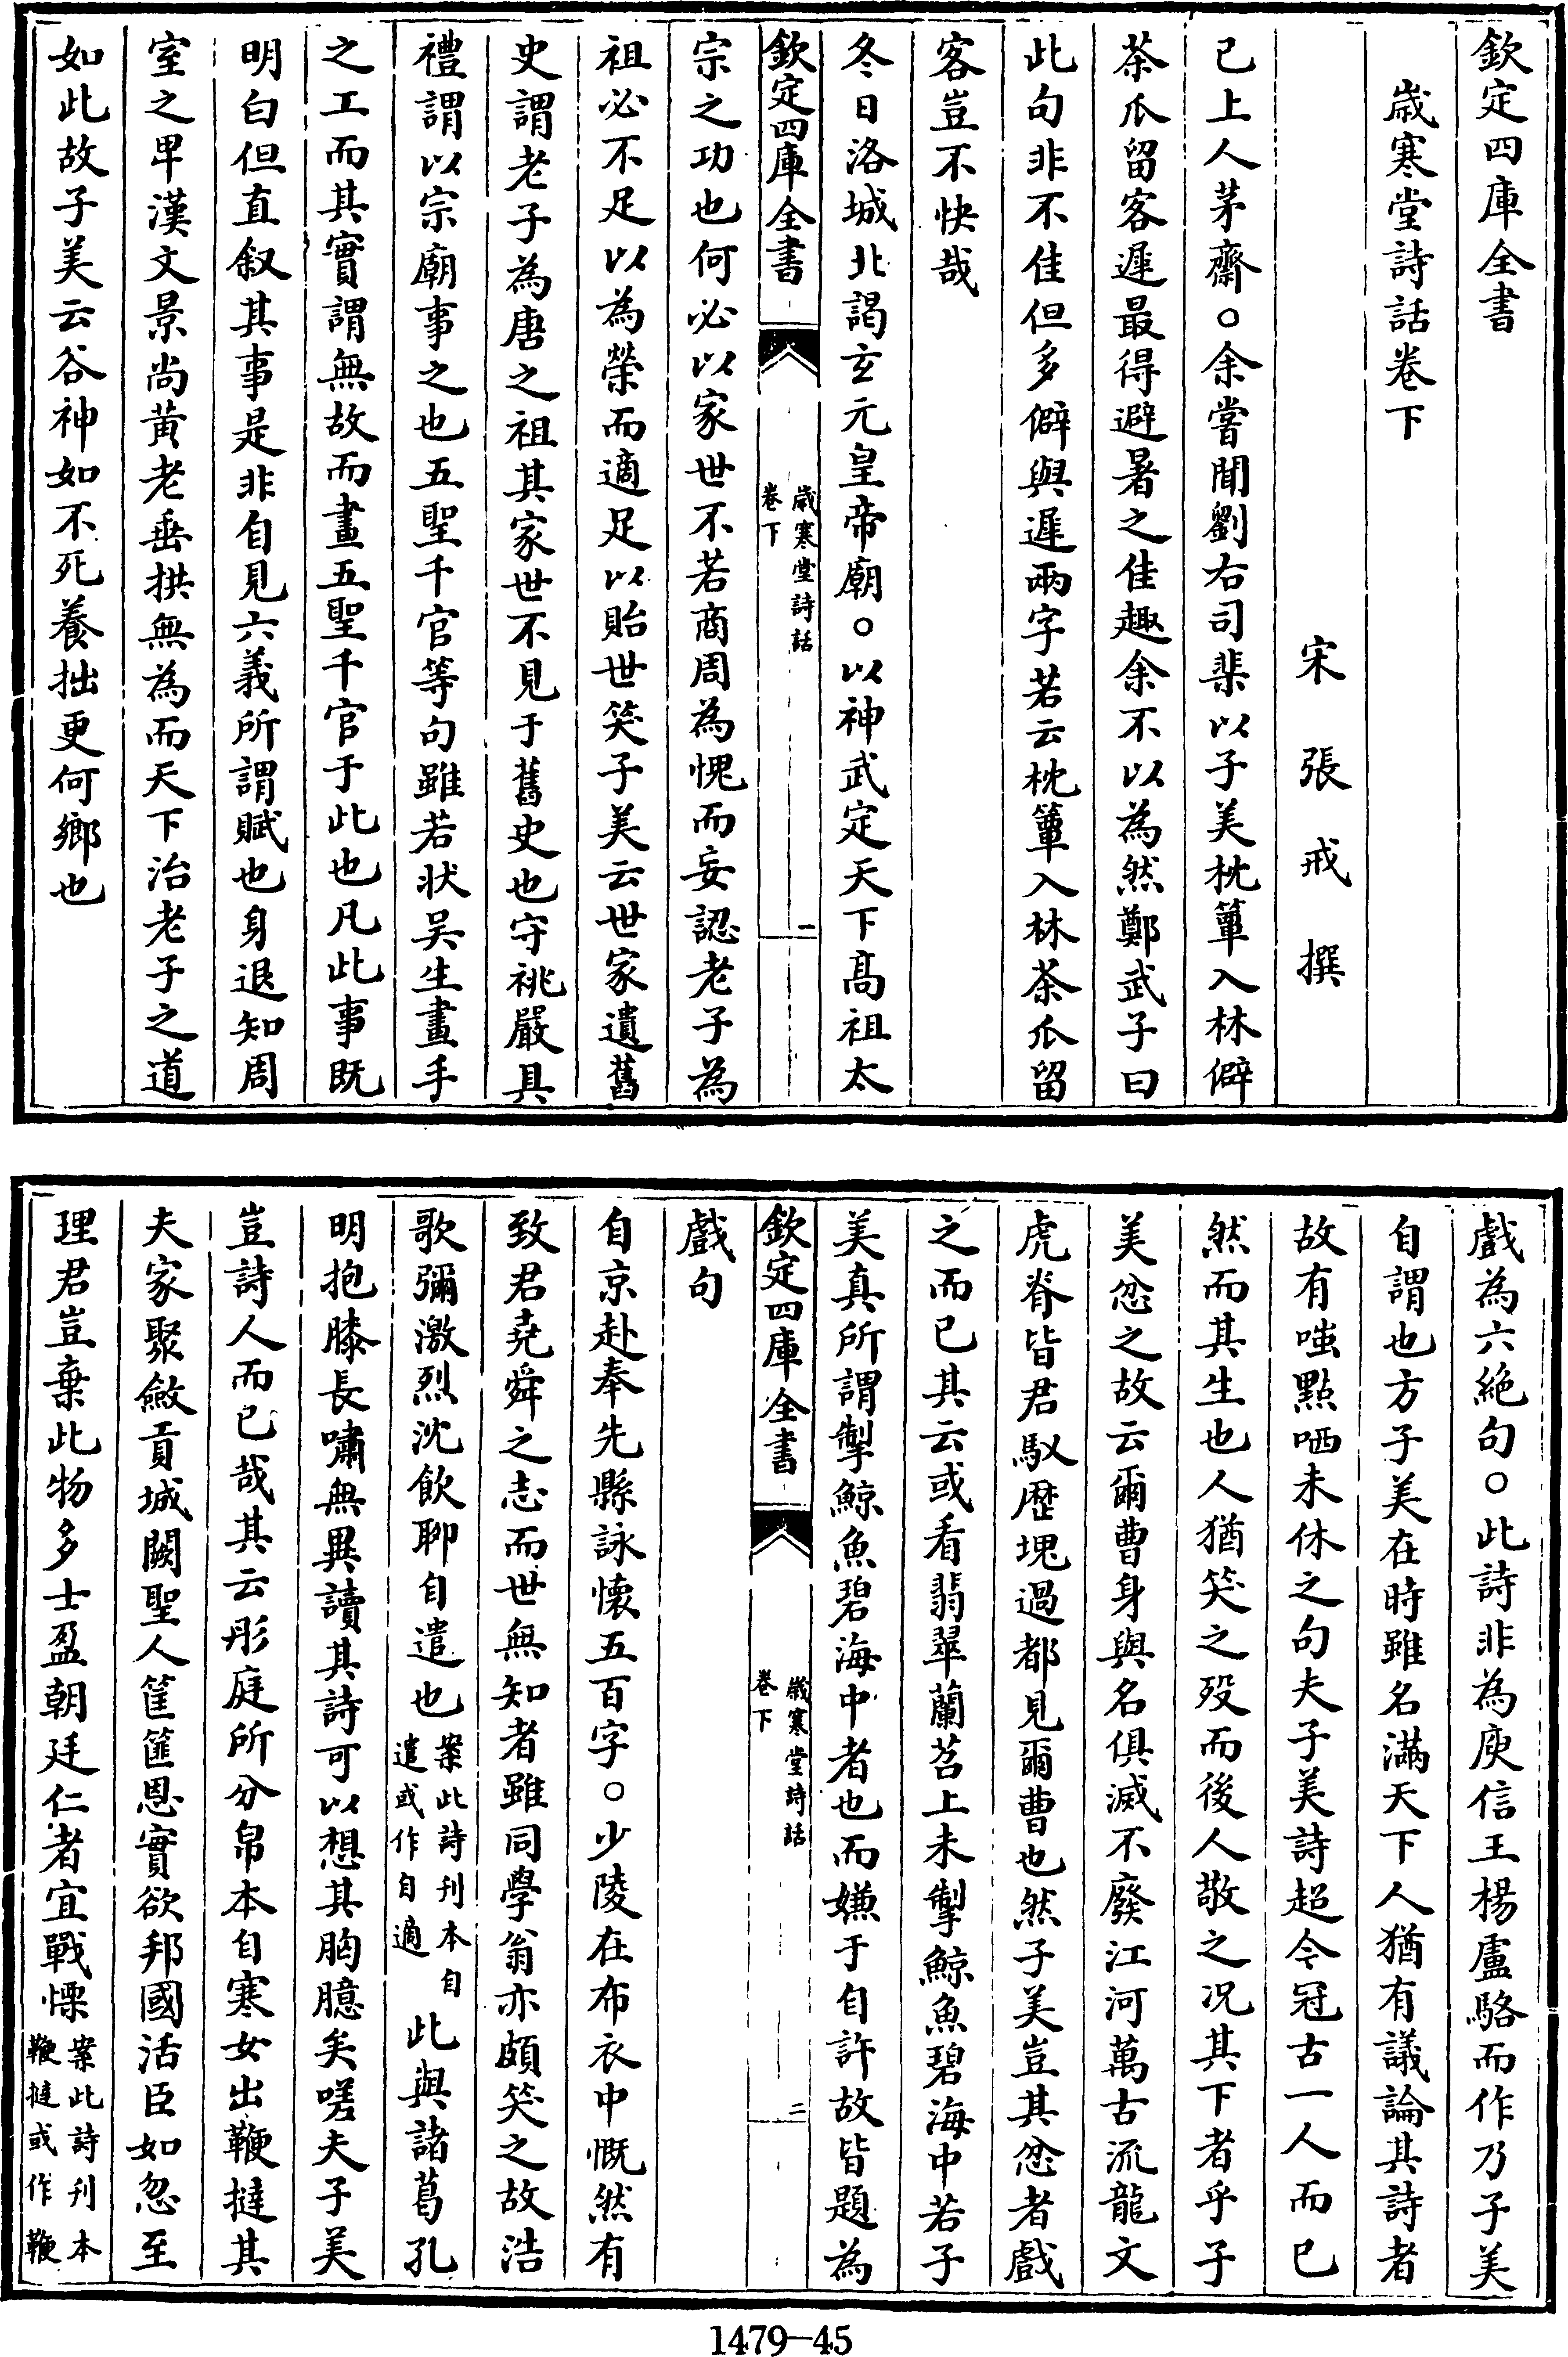 欽定四庫全書
歲寒堂詩話卷下
宋張戒撰
已上人茅齋○余嘗聞劉右司棐以子美枕簟入林僻
茶瓜留客遲最得避暑之佳趣余不以為然鄭武子曰
此句非不佳但多僻與遲兩字若云枕簟入林茶瓜留
客豈不快哉
冬日洛城北謁玄元皇帝廟○以神武定天下高祖太
欽定四庫全書
歲寒堂詩話
卷下
一
宗之功也何必以家世不若商周為愧而妄認老子為
祖必不足以為榮而適足以貽世笑子美云世家遺舊
史謂老子為唐之祖其家世不見于舊史也守祧嚴具
禮謂以宗廟事之也五聖千官等句雖若狀吳生畫手
之工而其實謂無故而畫五聖千官于此也凡此事既
明白但直叙其事是非自見六義所謂賦也身退知周
室之卑漢文景尚黃老垂拱無為而天下治老子之道
如此故子美云谷神如不死養拙更何鄉也
戲為六絶句○此詩非為庾信王楊盧駱而作乃子美
自謂也方子美在時雖名滿天下人猶有議論其詩者
故有嗤點哂未休之句夫子美詩超今冠古一人而已
然而其生也人猶笑之歿而後人敬之况其下者乎子
美忿之故云爾曹身與名俱滅不廢江河萬古流龍文
虎脊皆君馭歷塊過都見爾曹也然子美豈其忿者戲
之而已其云或看翡翠蘭苕上未掣鯨魚碧海中若子
美真所謂掣鯨魚碧海中者也而嫌于自許故皆題為
欽定四庫全書
歲寒堂詩話
卷下
二
戲句
自京赴奉先縣詠懷五百字○少陵在布衣中慨然有
致君堯舜之志而世無知者雖同學翁亦頗笑之故浩
歌彌激烈沈飲聊自遣也案此詩刊本自遣或作自適此與諸葛孔
明抱膝長嘯無異讀其詩可以想其胸臆矣嗟夫子美
豈詩人而已哉其云彤庭所分帛本自寒女出鞭撻其
夫家聚斂貢城闕聖人筐篚恩實欲邦國活臣如忽至
理君豈棄此物多士盈朝廷仁者宜戰慄案此詩刊本鞭撻或作鞭
1479—45